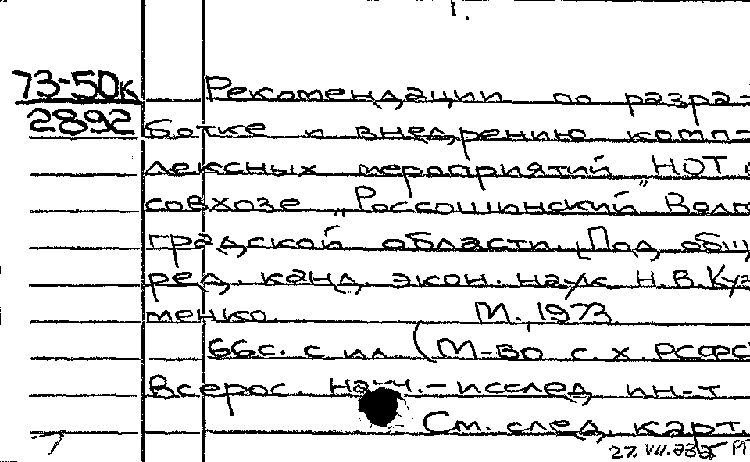 73-50к
2892
Рекомендации по разра-
ботке и внедрению комп-
лексных мероприятий НОТ в
совхозе „Россошинский" Волго
градской области. [Под общ
ред. канд. экон. наук Н.В. Куз
менко. М., 1973
66с. с ил. (М-во с.х. РСФС
Всерос. науч.-исслед. ин-т
См. след. карт.